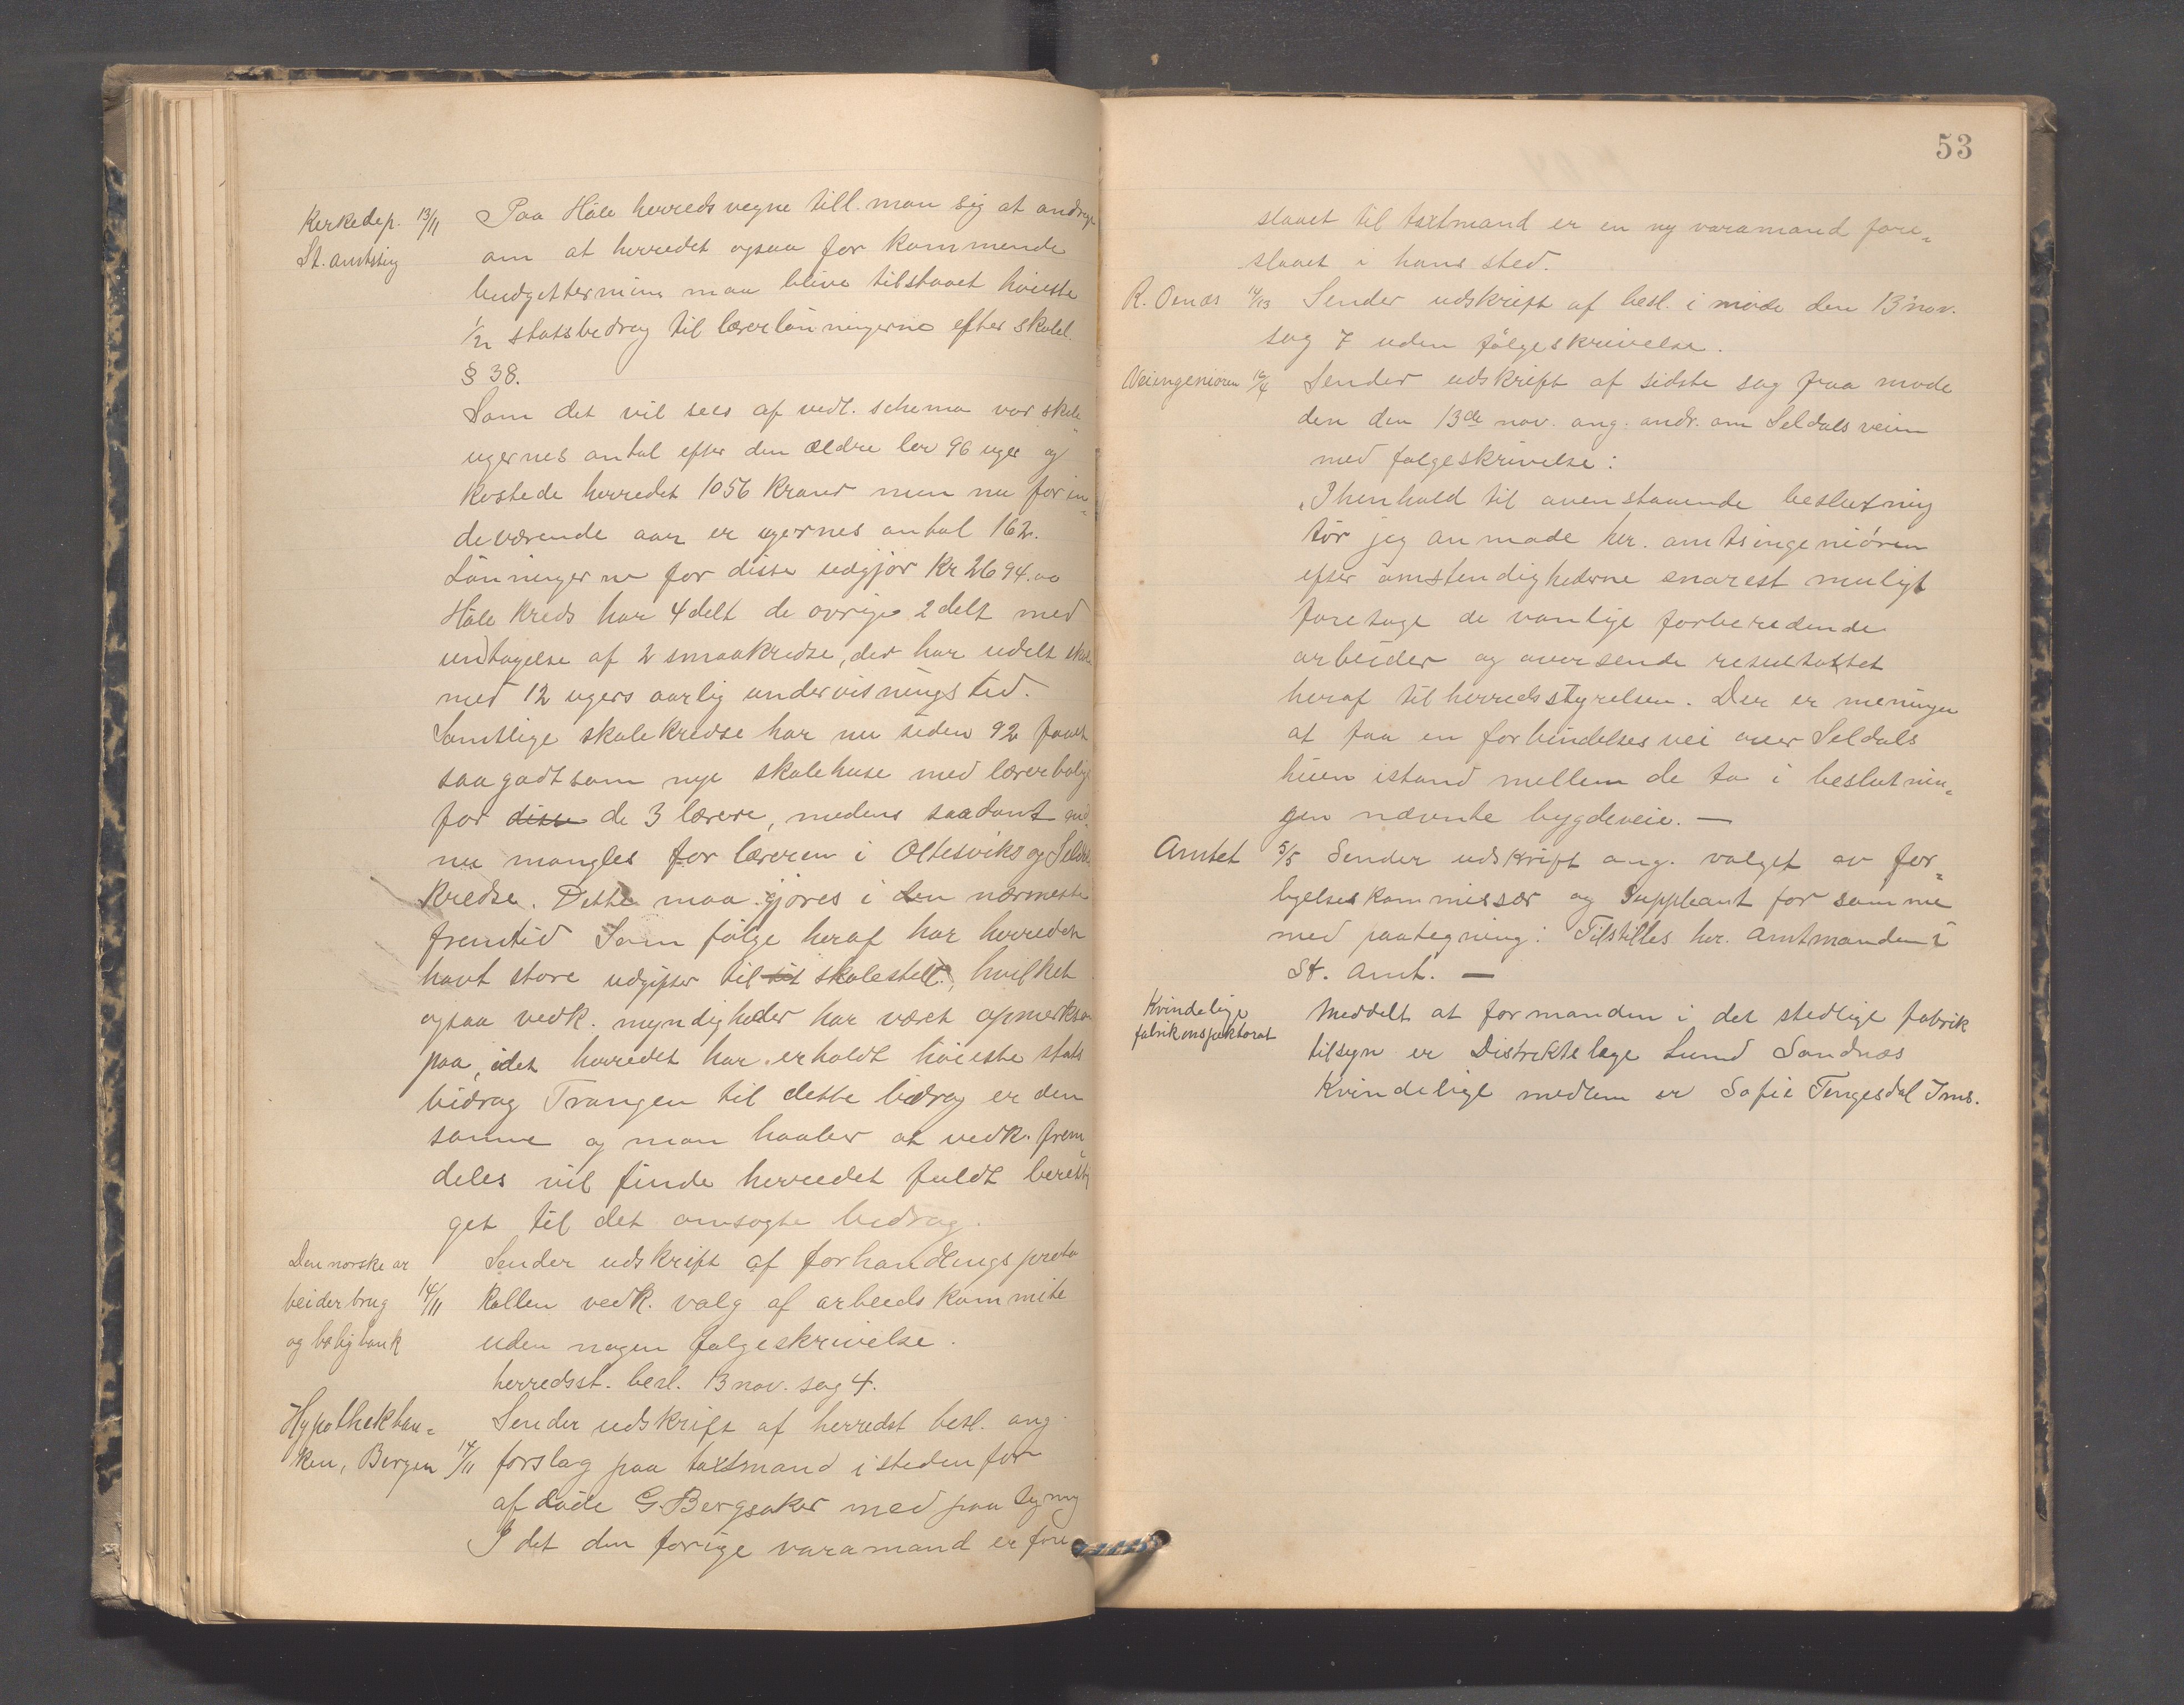 Kirkedep. 13/11 Paa Höle herreds vegne till. man sig at andrage
St. amtsting om at herredet ogsaa for kommende
budgettermin maa blive tilstaaet höieste
1/2 statsbedrag til lærerlönningerne efter skolel.
§ 38.
Som det vil sees af vedl. schema var skole
ugernes antal efter den ældre lov 96 uger og
kostede herredet 1056 kroner men nu for in=
deværende aar er ugernes antal 162.
Lönningerne for disse udgjör Kr 2694.00
Höle Kreds har 4 delt de ovrige 2 delt med
undtagelse af 2 smaakredse, der har udelt skole
med 12 ugers aarlig undervisningstid.
Samtlige skolekredse har nu siden 92 faaet
saa godt som nye skolehuse med lærerbolig
for disse de 3 lærere, medens saadant end
nu mangles for læreren i Oltesviks og Seldals
Kredse. Dette maa gjöres i den nærmeste
fremtid Som fölge heraf har herredet
havt store udgifter til sit skolestell, hvilket
ogsaa vedk. myndigheder har været opmerksom
paa, idet herredet har erholdt höieste stats
bidrag Trangen til dette bidrag er den
samme og man haaber at vedk. frem
deles vil finde herredet fuldt beretti
get til det ansogte bidrag.
Den norske ar Sender udskrift af forhandlingsproto
beiderbrug 14/11 kollen vedk. valg af arbeidskommite
og boligbank uden nogen folgeskrivelse.
herredsst. besl. 13 nov. sag 4.
Hypothekban= Sender udskrift af herredst besl. ang.
ken, Bergen 14/11 forslag paa taxtmand i steden for
afdöde G. Bergsaker med paategning
I det den forrige varamand er fore
53
slaaet til taxtmand er en ny varamand fore=
slaaet i hans sted.
R. Oenæs 14/13 Sender udskrift af besl. i möde den 13 nov.
sag 7 uden fölgeskrivelse.
Veiingenioren Sender udskrift af sidste sag fraa mode
den den 13de nov. ang. andr. om Seldalsveien
med folgeskrivelse:
"I henhold til ovenstaaende beslutning
tör jeg anmode her. amtsingeniören
efter omstendighederne snarest muligt
foretage de vanlige forberedende
arbeider og oversende resultattet
heraf til herredsstyrelsen. Der er meningen
at faa en forbindelsesvei over Seldals
heien istand mellem de to i beslutnin=
gen nævnte bygdeveie. —
Amtet 5/5 Sender udskrift ang. valget av for=
lygelseskommissær og Suppleant for samme
med paategning: Tilstilles hr. Amtmanden i
St. Amt. —
Kvindelige Meddelt at formanden i det stedlige fabrik
fabrikinspektorat tilsyn er Distriktslæge Lund Sandnæs
Kvindelige medlem er Sofie Tengesdal Ims.